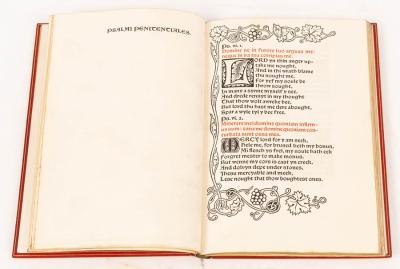 PSALMI PENITENTIALES.
Ps. vi. 1.
Domine ne in furore tuo arguas me:
neque in ira tua corripias me.
LORD yn thin anger up-
take me nought,
And in thi wrath blame
thu nought me,
For yef my soule be
throw nought,
In many a synne myself y see
And drede rennyt in my thought
That thou wolt awreke bee,
But lord thu hast me dere abought,
Spar a wyle tyl y thryve bee.
Ps. vi. 2.
Miserere mei domine quoniam infirm-
us sum: sana me domine quoniam con-
turbata sunt ossa mea.
MERCY lord for y am seek,
Hele me, for brused beth my bonus,
Mi flesch ys frel, my soule hath eek
Forgret mester to make monus.
But wenne my cors is cast yn creek,
And dolvyn depe under stones,
Thou mercyable and meek,
Lese nought that thou boughtest ones.